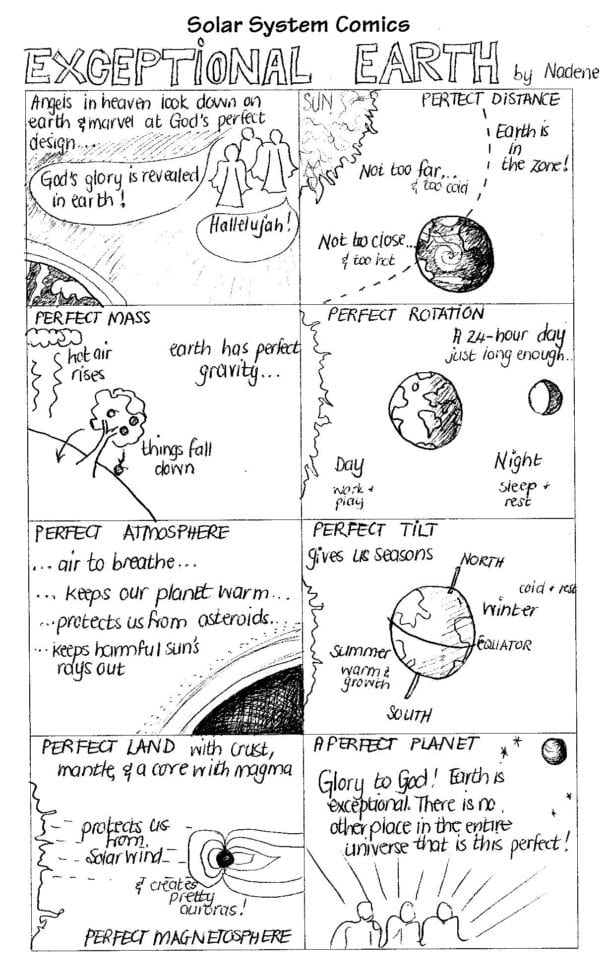 Solar System Comics
EXCEPTIONAL EARTH by Nadene
Angels in heaven look down on
earth & marvel at God's perfect
design...
God's glory is revealed
in earth!
Hallelujah!
SUN
PERFECT DISTANCE
Earth is
in
the zone!
Not too far...
& too cold
Not too close...
& too hot
PERFECT MASS
hot air
rises
earth has perfect
gravity...
things fall
down
PERFECT ROTATION
A 24-hour day
just long enough..
Day
work +
play
Night
sleep +
rest
PERFECT ATMOSPHERE
... air to breathe...
... keeps our planet warm...
...protects us from asteroids...
...keeps harmful sun's
rays out
PERFECT TILT
gives us seasons
NORTH
cold + rest
Winter
EQUATOR
Summer
warm &
growth
SOUTH
PERFECT LAND with crust,
mantle, & a core with magma
protects us
from
Solar wind
& creates
pretty
auroras!
PERFECT MAGNETOSPHERE
A PERFECT PLANET
Glory to God! Earth is
exceptional. There is no
other place in the entire
universe that is this perfect!